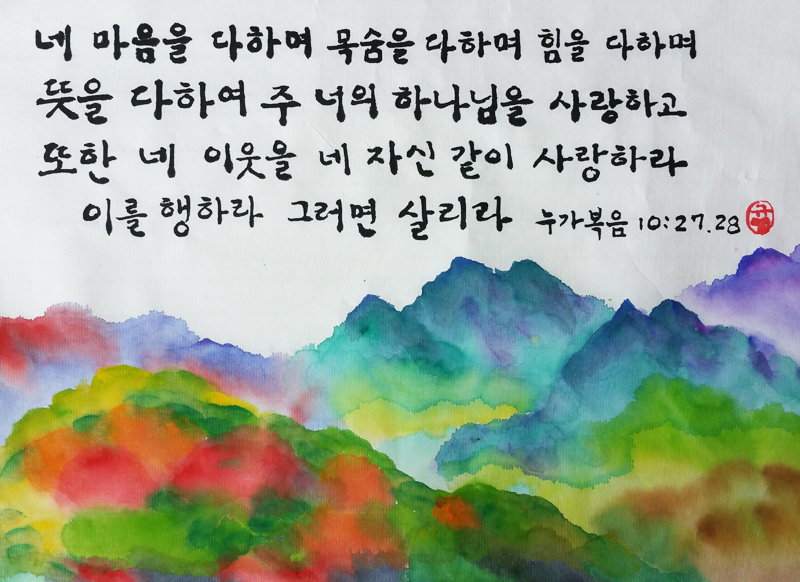 네 마음을 다하며 목숨을 다하며 힘을 다하며
뜻을 다하여 주 너의 하나님을 사랑하고
또한 네 이웃을 네 자신 같이 사랑하라
이를 행하라 그러면 살리라 누가복음 10:27.28